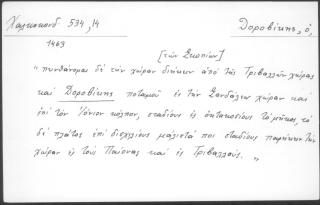 Χαλκοκονδ 534,14 Δοροβίκης, ὁ,
1463
[τῶν Σκοπίων]
"πυνθάνομαι δὲ τὴν χώραν διήκειν ἀπὸ τῆς Τριβαλλῶν χώρας
καὶ Δοροβίκης ποταμοῦ ἐς τὴν Σανδάλεω χώραν καὶ
ἐπὶ τὸν Ἰόνιον κόλπον, σταδίους ἐς ὀκτακοσίους τὸ μῆκος, τὸ
δὲ πλάτος ἐπὶ δισχιλίους μάλιστά που σταδίους παρήκειν τὴν
χώραν ἐς τοὺς Παίονας καὶ ἐς Τριβαλλούς. "